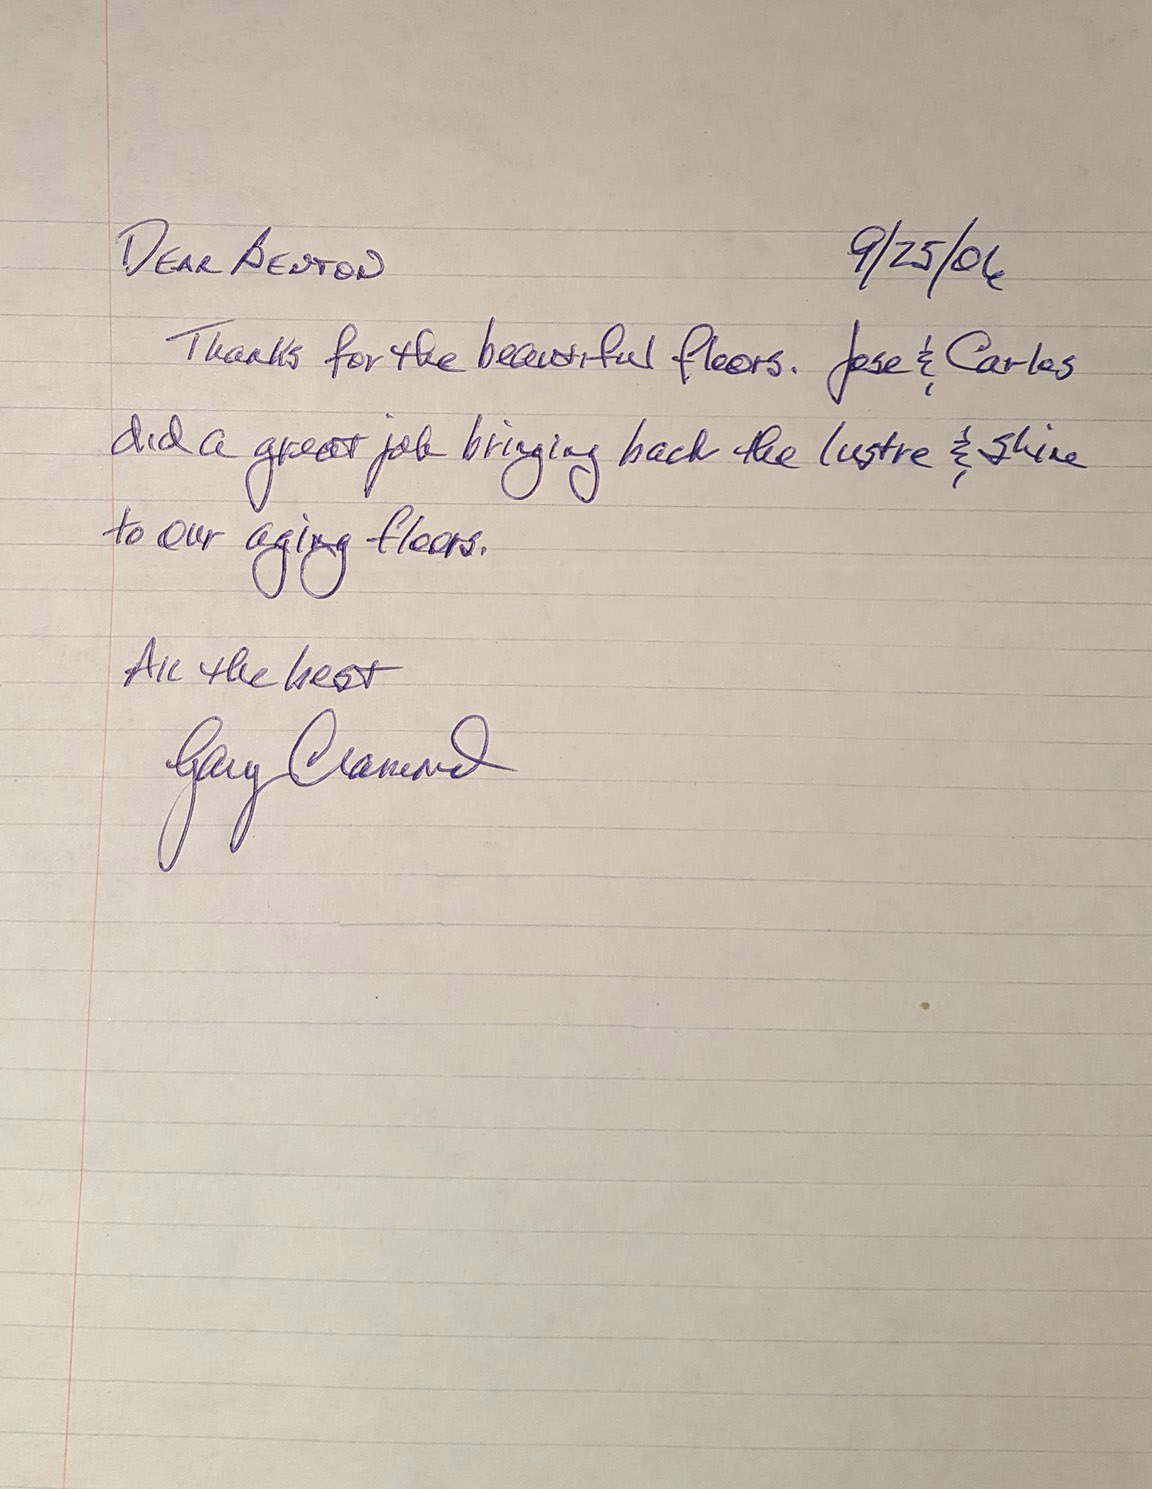 Dear Benton 9/25/06
Thanks for the beautiful floors. Jose & Carlos
did a great job bringing back the lustre & shine
to our aging floors.
All the best
Gary